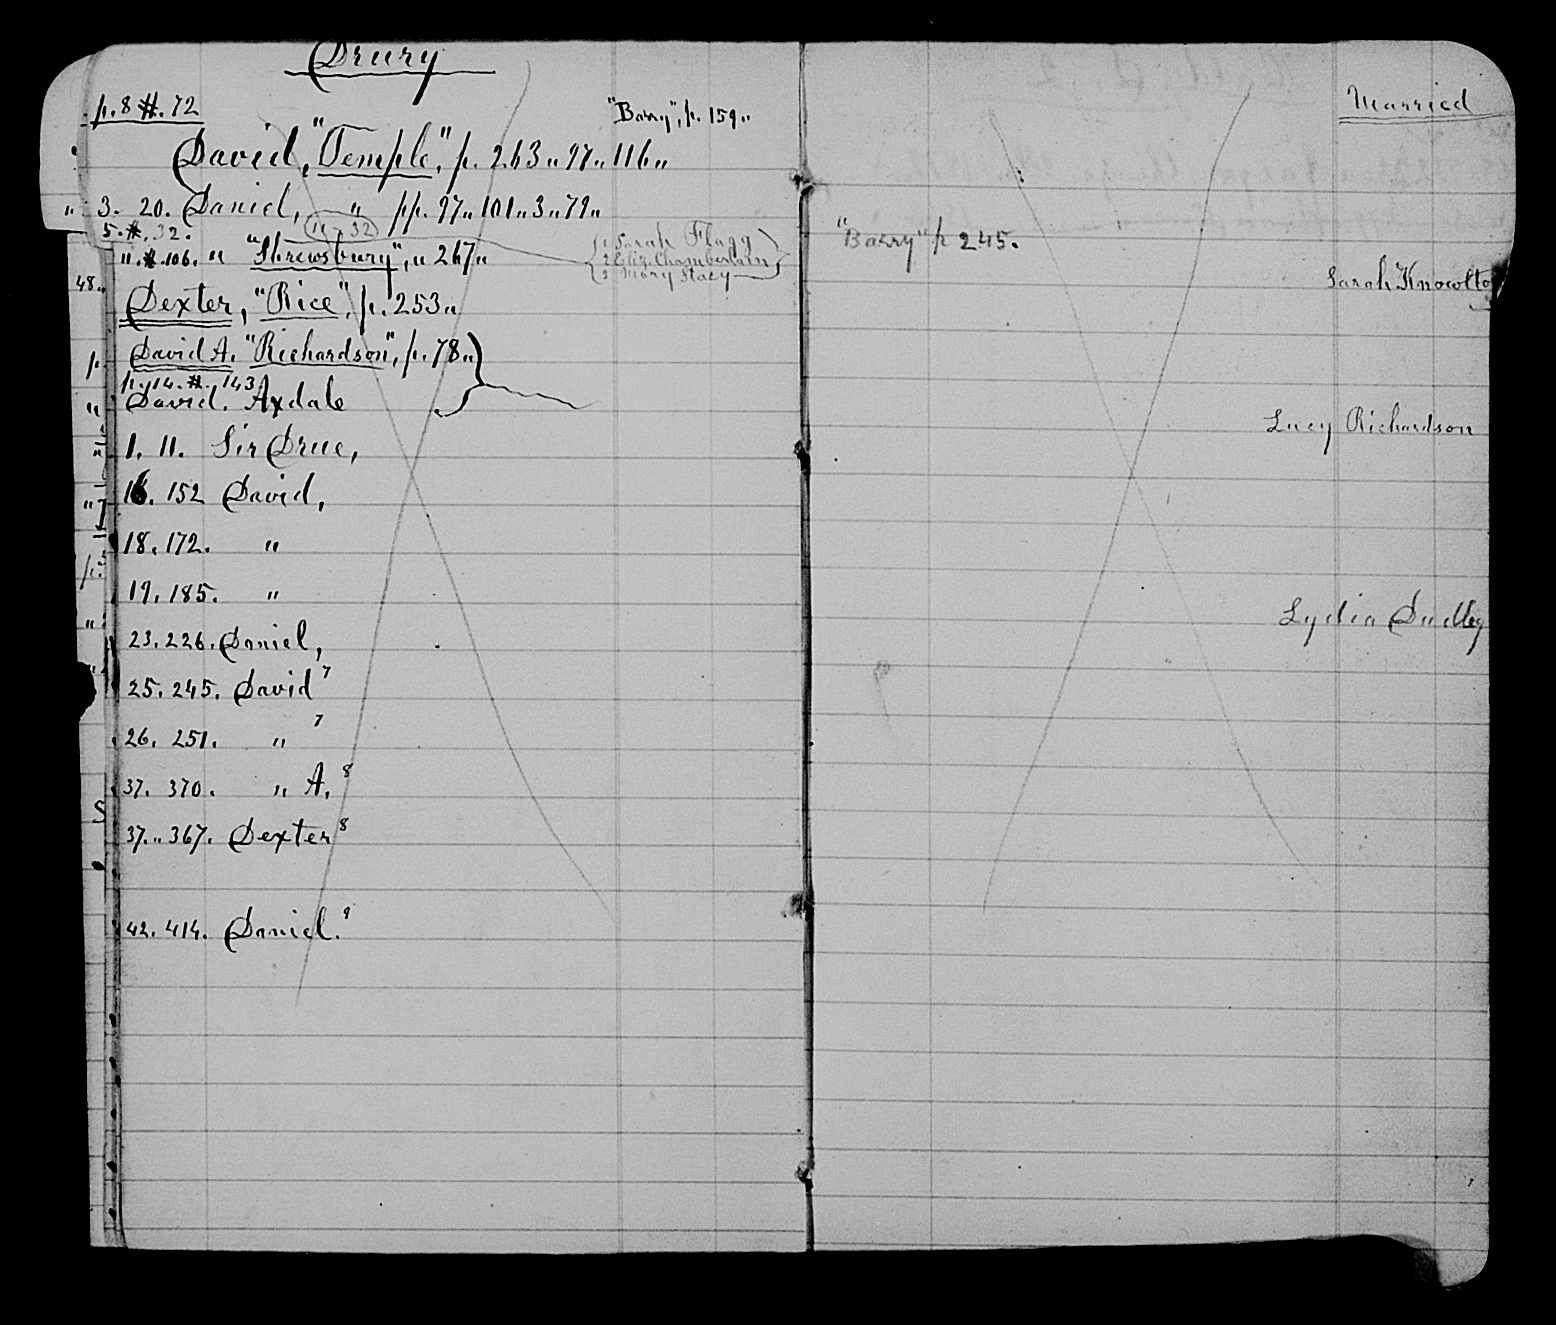 Drury
p. 8 #. 72
"Barry", p. 159„
David, "Temple", p. 263„ 97„ 116„
3. 20. Daniel, „ pp. 97„ 101„ 3„ 79„
5. #. 32. (11 - 32)
„. #. 106. „ "Shrewsbury", „ 267„
1 Sarah Flagg
2 Eliz. Chamberlain
3 Mary Stacy
48„
Dexter, "Rice", p. 253„
David A. "Richardson", p. 78„
p. 14. #. 143
David. Axdale
1. 11. Sir Drue,
16. 152 David,
18. 172. „
19. 185. „
23. 226. Daniel,
25. 245. David 7
26. 251. „ 7
37. 370. „ A. 8
37. „ 367. Dexter 8
42. 414. Daniel. 9
Married
"Barry" p 245.
Sarah Knowlto
Lucy Richardson
Lydia Dudley